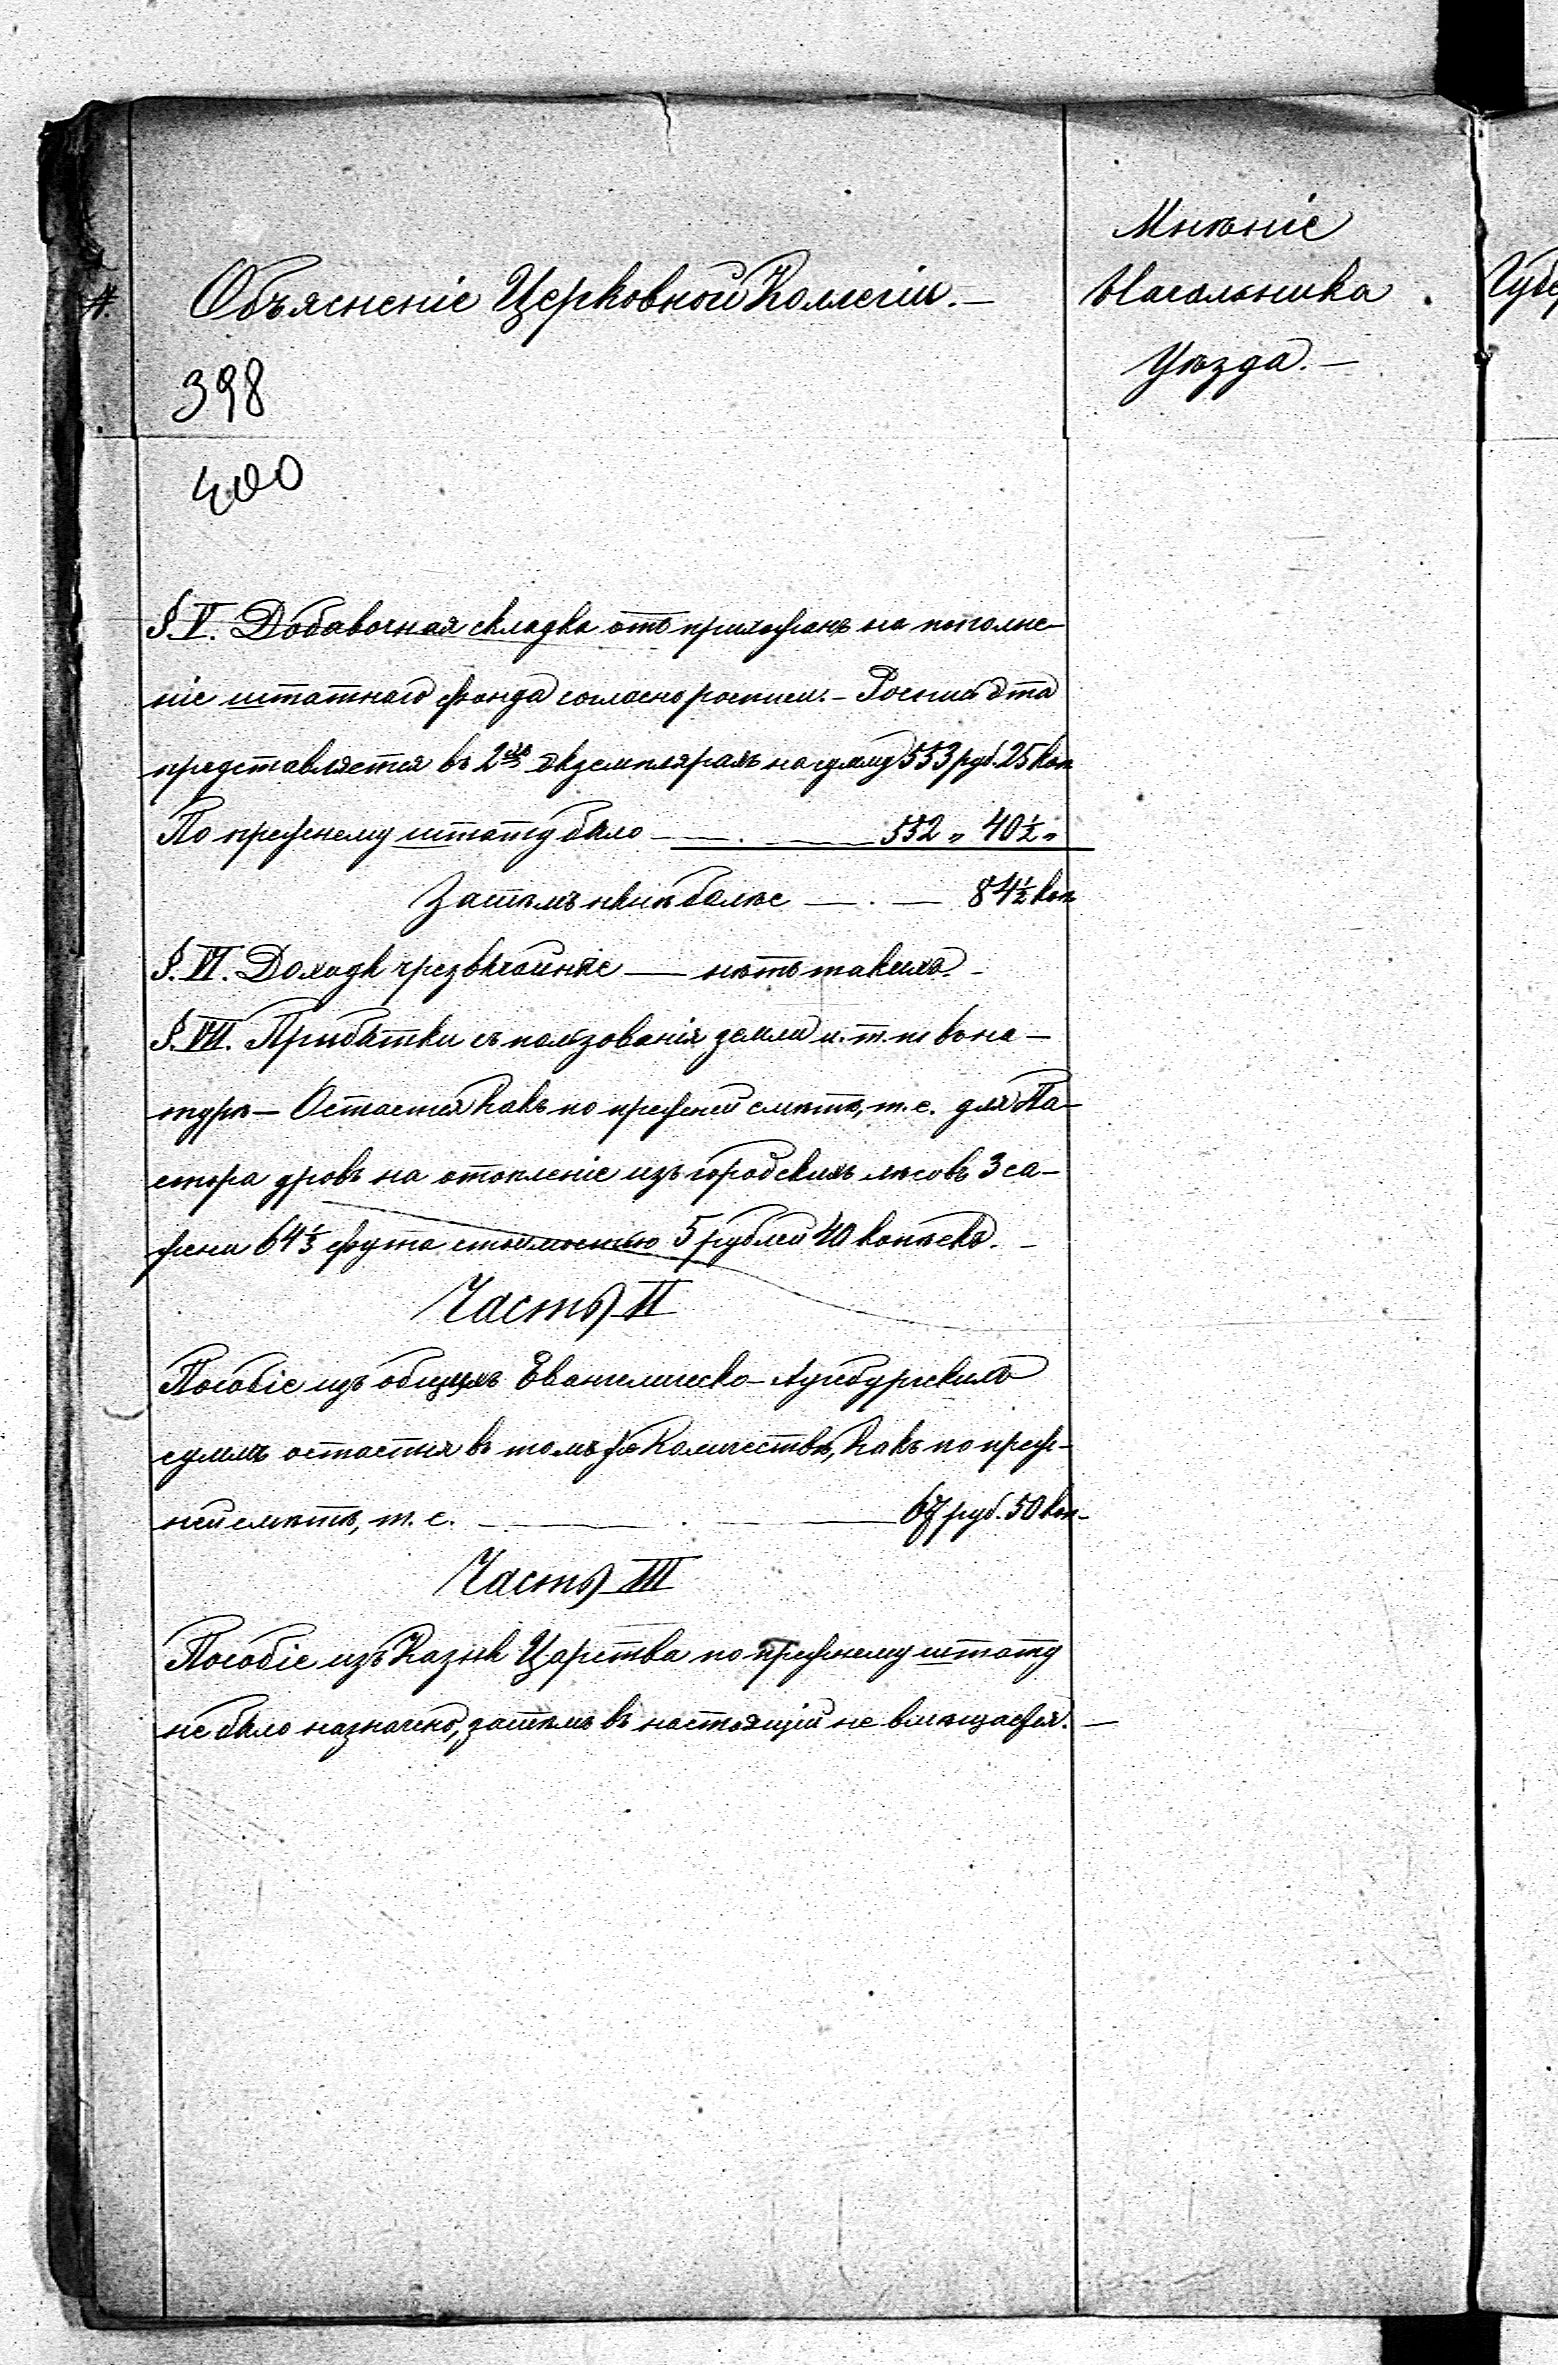 Мнѣніе
Объясненіе Церковной Коллегіи. —
Начальника
Губе
Уѣзда. —
398
400
§. V. Добавочная складка отъ прихожанъ на пополне-
ніе штатнаго фонда согласно росписи. — Роспись эта
представляется въ 2хъ экземплярахъ на сумму 553 руб. 25 коп
По прежнему штату было — . — 552 „ 40½ „
Затѣмъ нынѣ болѣе — . — 84½ коп
§. VI. Доходы чрезвычайные — нѣтъ такихъ. —
§. VII. Прибытки съ пользованія земли и. т. п. въ на-
турѣ — Остается какъ по прежней смѣтѣ, т. е. для Па-
стора дровъ на отопленіе изъ городскихъ лѣсовъ 3 са-
жени 64⅓ фута стоимостью 5 рублей 40 копѣекъ. —
Часть II
Пособіе изъ общихъ Евангелическо-Аугсбургскихъ
суммъ остается въ томъ же количествѣ, какъ по преж-
ней смѣтѣ, т. е. — . — 67 руб. 50 коп.
Часть III
Пособіе изъ Казны Царства по прежнему штату
не было назначено, затѣмъ въ настоящій не вмѣщается. —